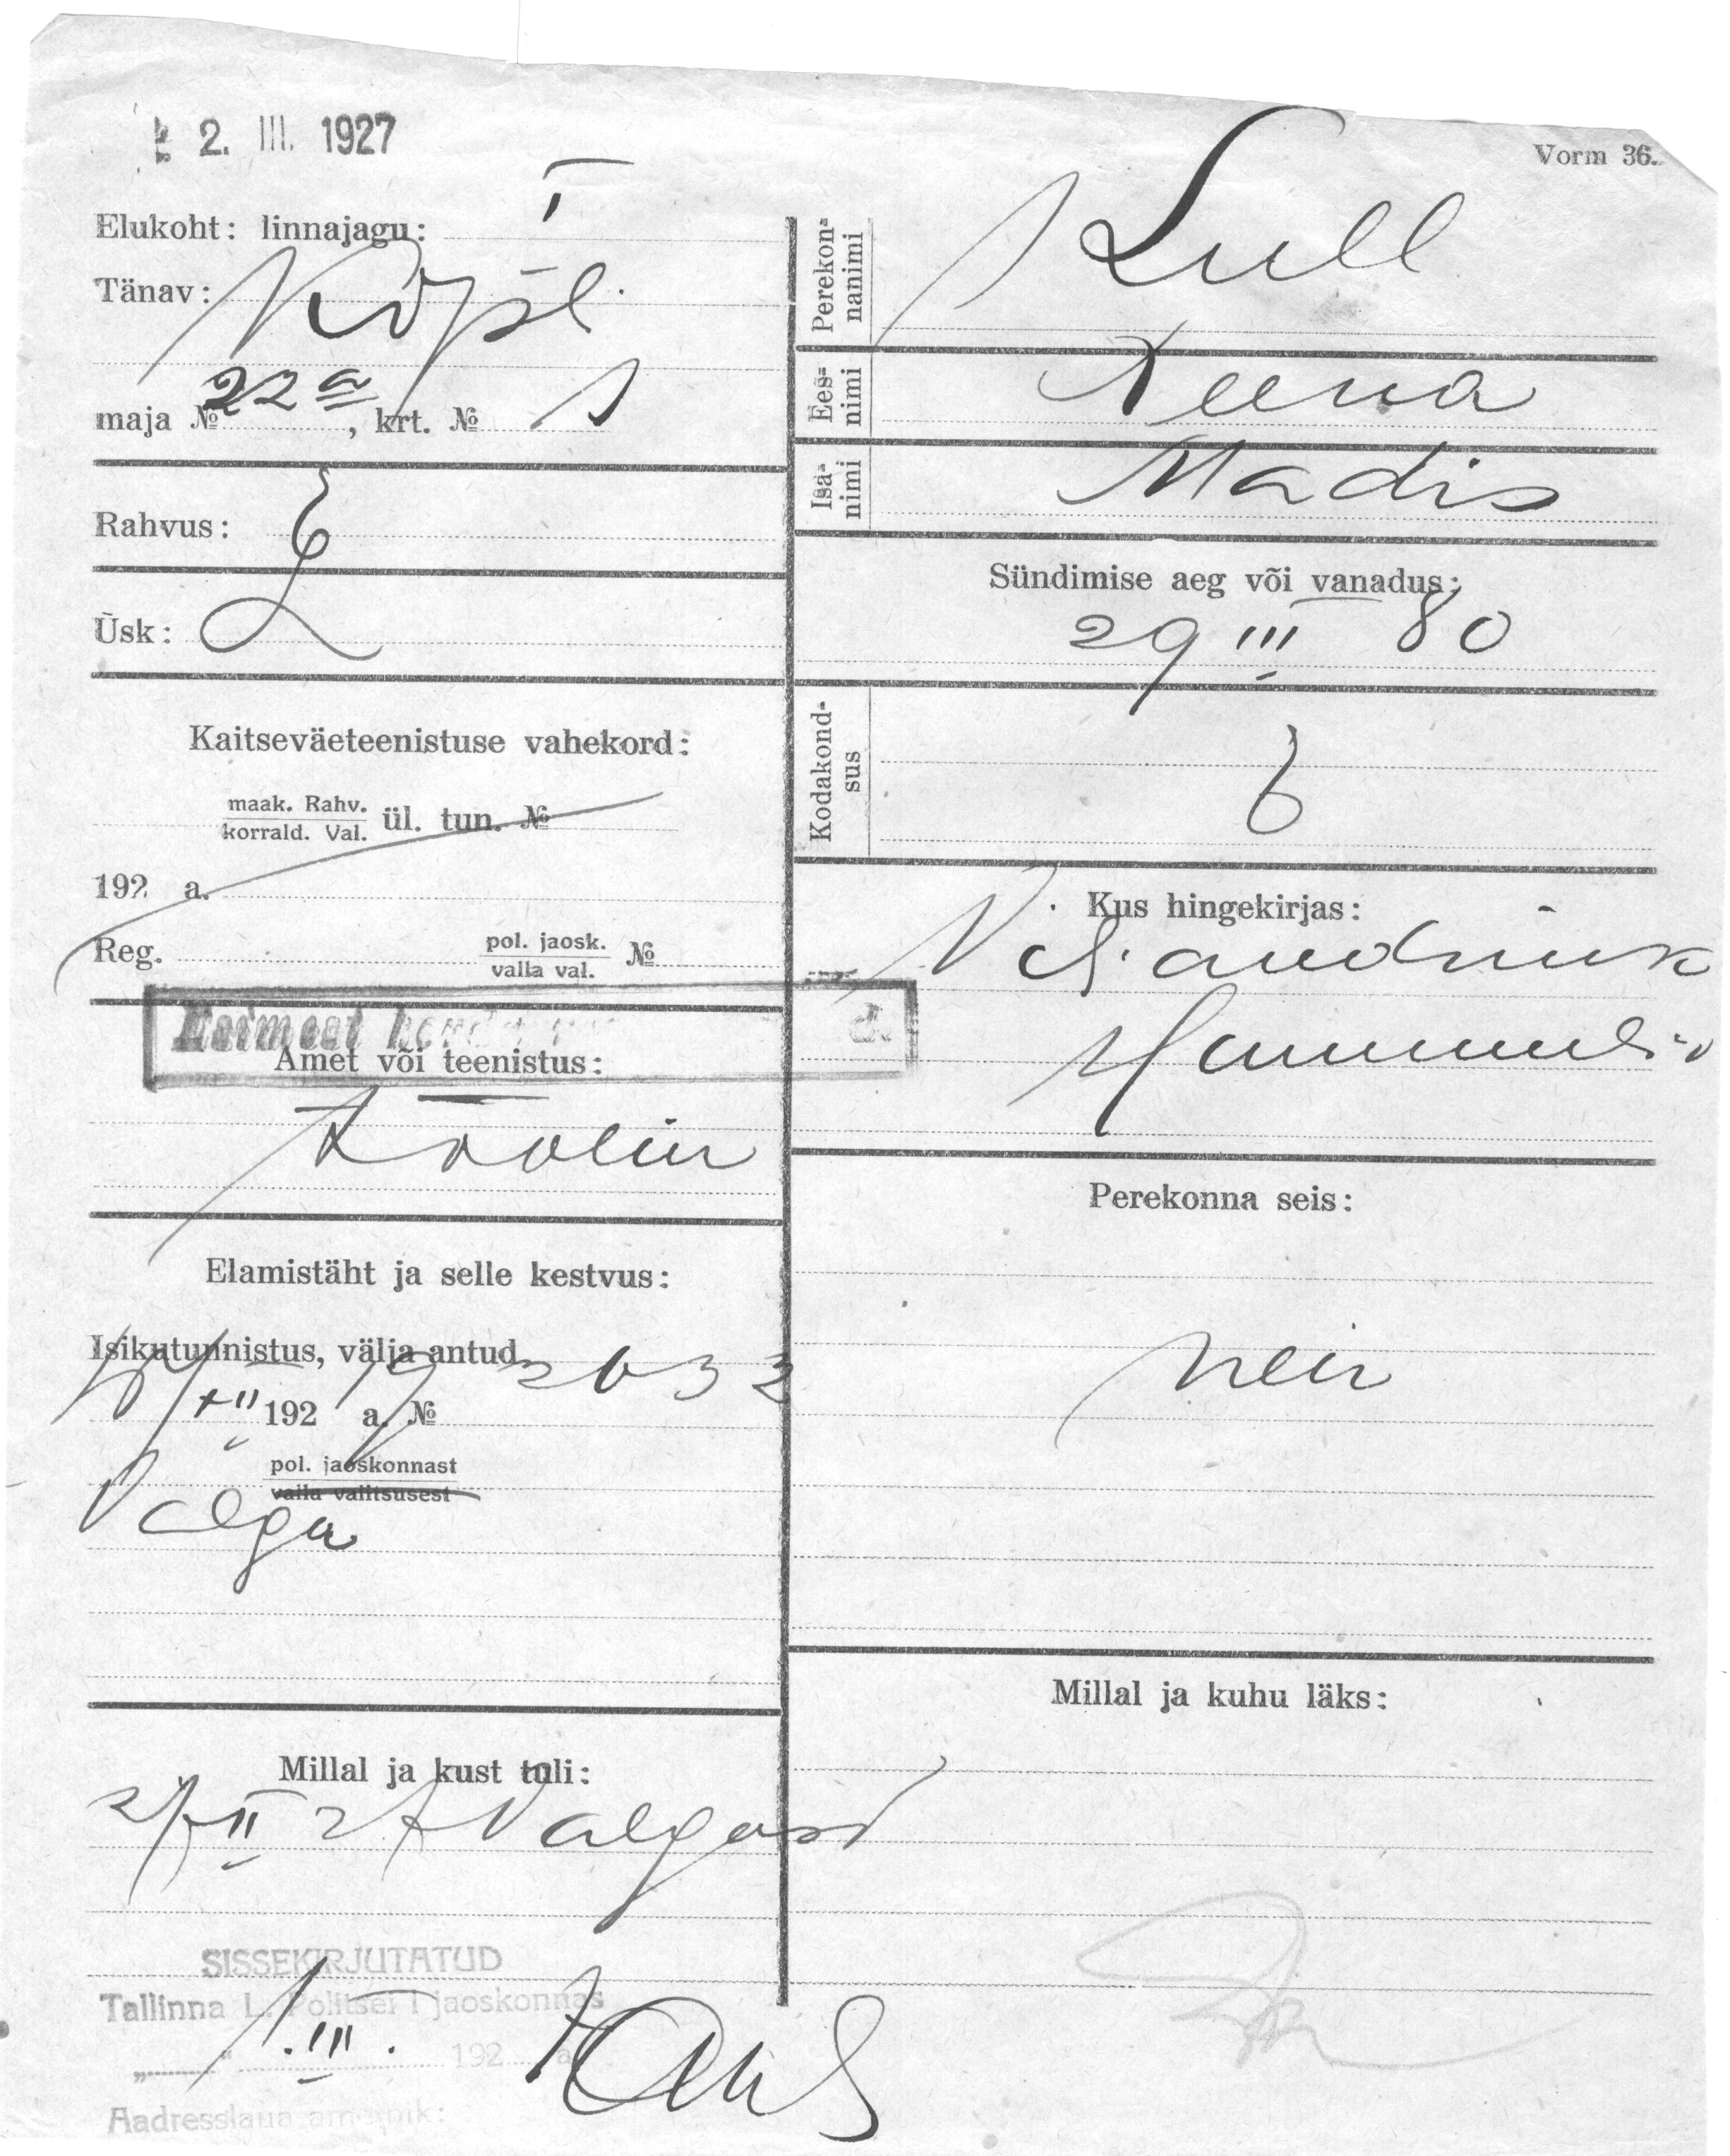 2. III. 1927
Vorm 36.
Elukoht: linnajagu: I
Tänav: Kopli
maja № 22a, krt. № 1
Rahvus: E
Usk: L
Kaitseväeteenistuse vahekord:
maak. Rahv.
korrald. Val. ül. tun. №
192 a.
Reg. pol. jaosk. №
valla val.
Esimest korda
Amet või teenistus:
Elamistäht ja selle kestvus:
Isikutunnistus, välja antud
192 a. №
pol. jaoskonnast
valla valitsusest
Valga
Millal ja kust tuli:
27 II 27 Valgast
SISSEKIRJUTATUD
Tallinna L. Politsei I jaoskonnas
1. III. 192 a.
Aadresslaua ametnik:
Perekonnanimi Lull
Eesnimi Leena
Isanimi Madis
Sündimise aeg või vanadus:
29 III 80
Kodakondsus E
Kus hingekirjas:
Perekonna seis:
neiu
Millal ja kuhu läks: